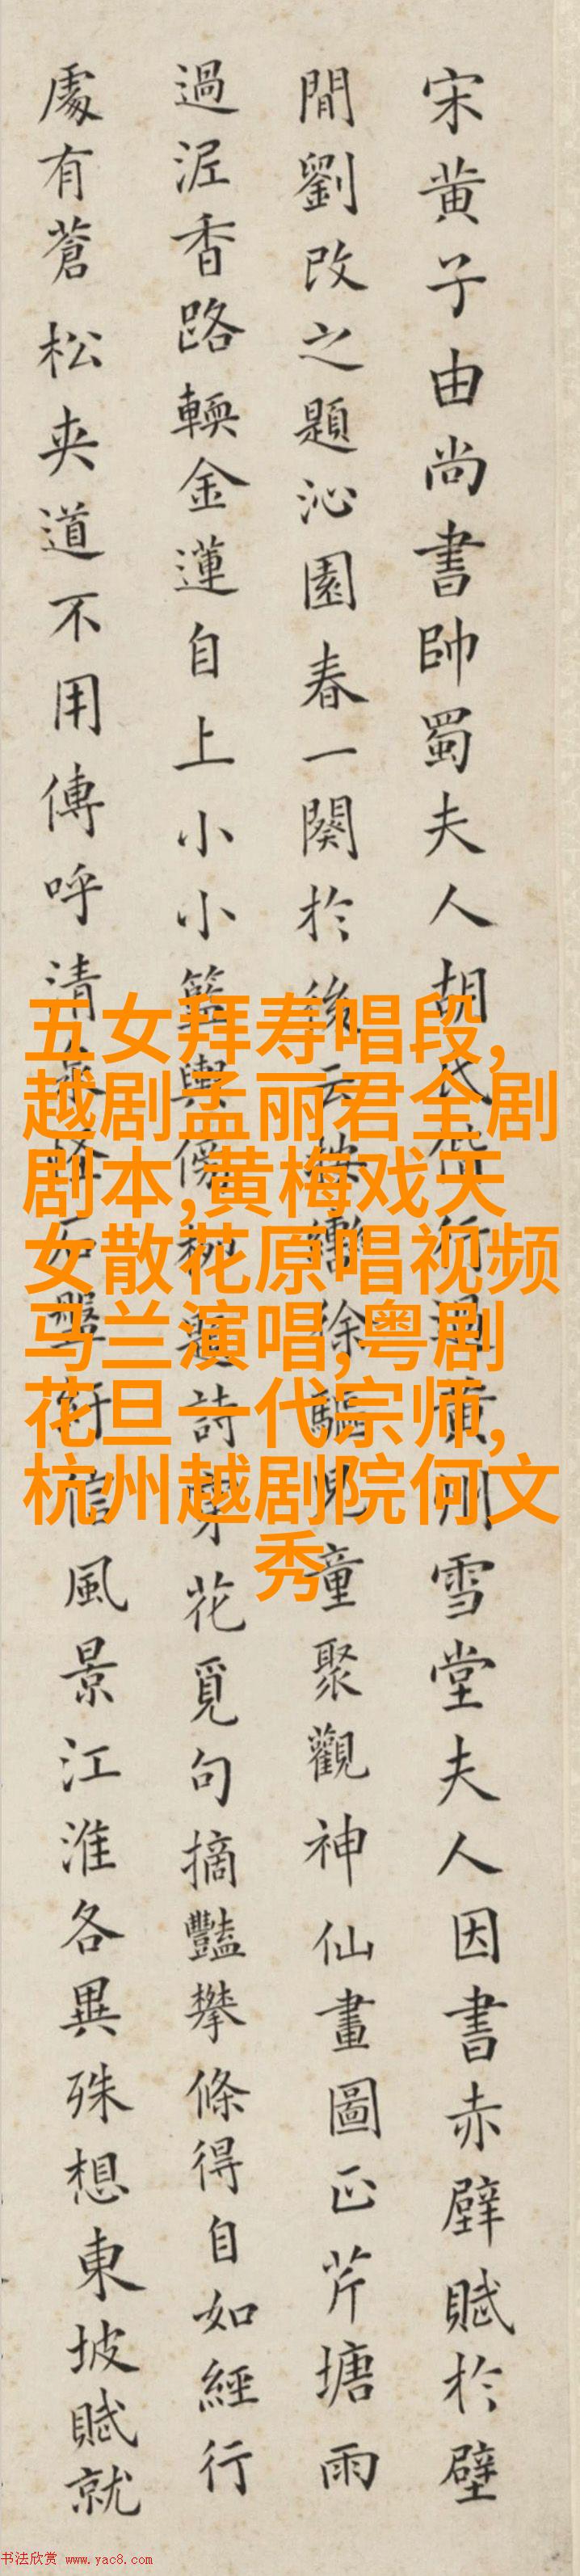 宋黄子由尚書帥蜀夫人胡氏偕行過黄州雪堂夫人因書赤壁賦於壁
間劉改之題沁園春一闋於後云按轡徐驅兒童聚觀神仙畫圖正芹塘雨
過泥香路輭金蓮自上小小籃輿傍柳題詩穿花覓句摘豔攀條得自如經行
處有蒼松夹道不用傳呼清泉怪石盤紆信風景江淮各異殊想東坡賦就
五女拜寿唱段,
越剧孟丽君全剧
剧本,黄梅戏天
女散花原唱视频
马兰演唱,粤剧
花旦一代宗师,
杭州越剧院何文
秀
书法欣赏 www.yac8.com